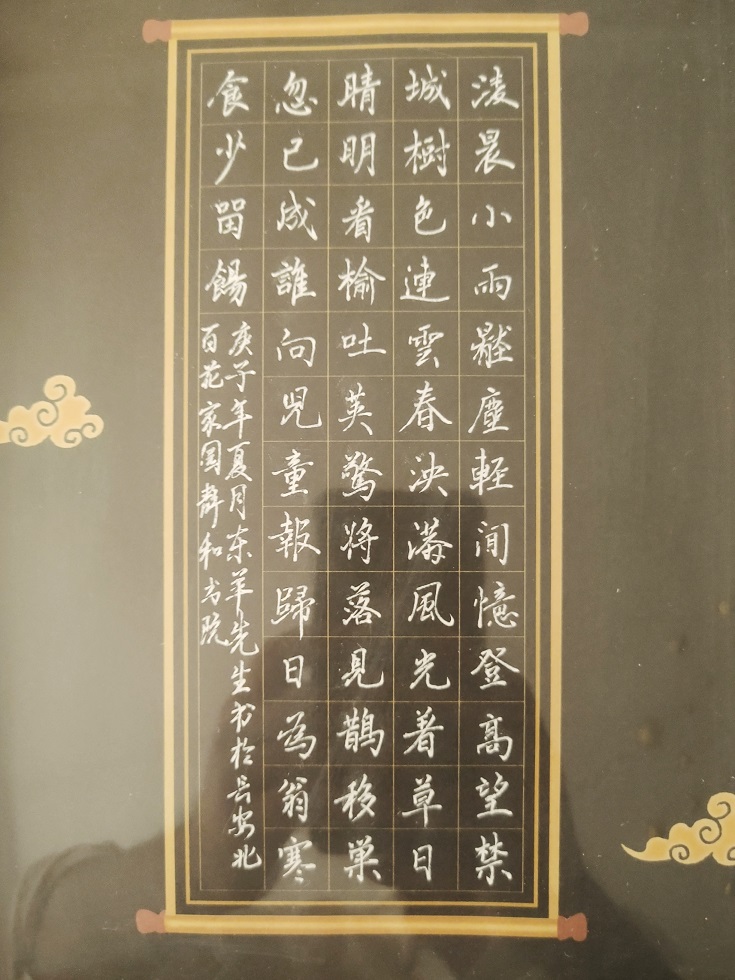 淩晨小雨壓塵輕閒憶登高望禁
城樹色連雲春泱漭風光着草日
晴明看榆吐莢驚將落見鵲移巢
忽已成誰向兒童報歸日為翁寒
食少留餳
庚子年夏月东苹先生书於长安北
百花家园静和书院